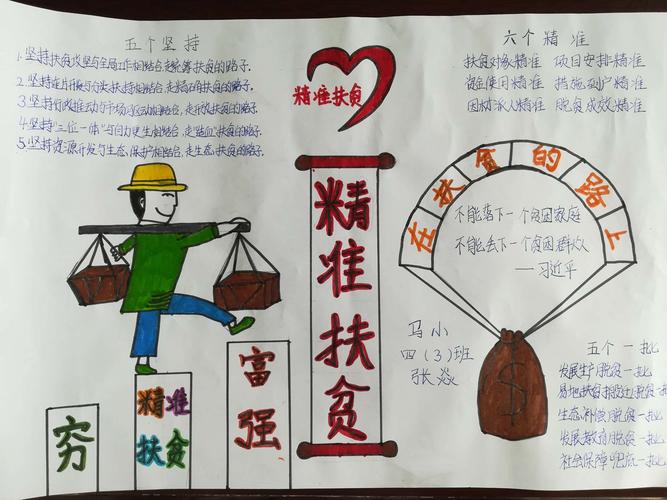 五个坚持
1.坚持扶贫攻坚与全局工作相结合,走统筹扶贫的路子.
2.坚持连片开发与分类扶持相结合,走精确扶贫的路子.
3.坚持行政推动与市场驱动相结合,走开放扶贫的路子.
4.坚持"三位一体"与自力更生相结合,走"造血"扶贫的路子.
5.坚持资源开发与生态保护相结合,走生态扶贫的路子.
精准扶贫
六个精准
扶贫对象精准 项目安排精准
资金使用精准 措施到户精准
因村派人精准 脱贫成效精准
精准扶贫
在扶贫的路上
不能落下一个贫困家庭
不能丢下一个贫困群众
——习近平
马小
四(3)班
张焱
穷
精准
扶贫
富强
$
五个一批
发展生产脱贫一批
易地扶贫搬迁脱贫一批
生态补偿脱贫一批
发展教育脱贫一批
社会保障兜底一批